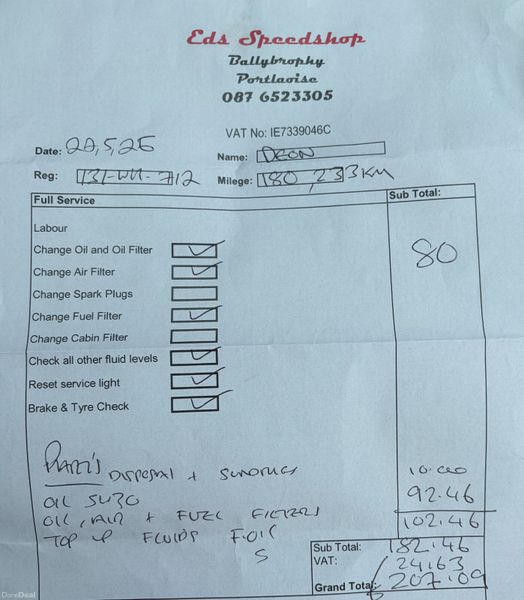 Eds Speedshop
Ballybrophy
Portlaoise
087 6523305
VAT No: IE7339046C
Date: 20,5,25
Name: DEON
Reg: 131-WH-712
Milege: 180,233KM
Full Service
Sub Total:
Labour
Change Oil and Oil Filter
80
Change Air Filter
Change Spark Plugs
Change Fuel Filter
Change Cabin Filter
Check all other fluid levels
Reset service light
Brake & Tyre Check
Parts DISPOSAL + SUNDRIES
OIL 5W30 92.46
OIL, AIR + FUEL FILTERS 102.46
TOP UP FLUIDS
Sub Total: 182.46
VAT: 24.63
Grand Total: 207.09
DoneDeal